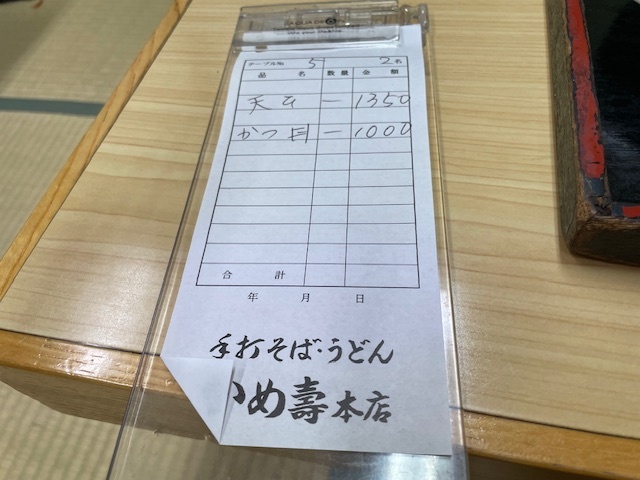 テーブルNo. 5 2名
品名 数量 金額
天セ 一 1350
かつ目 一 1000
合計
年 月 日
手打そば・うどん
め壽本店